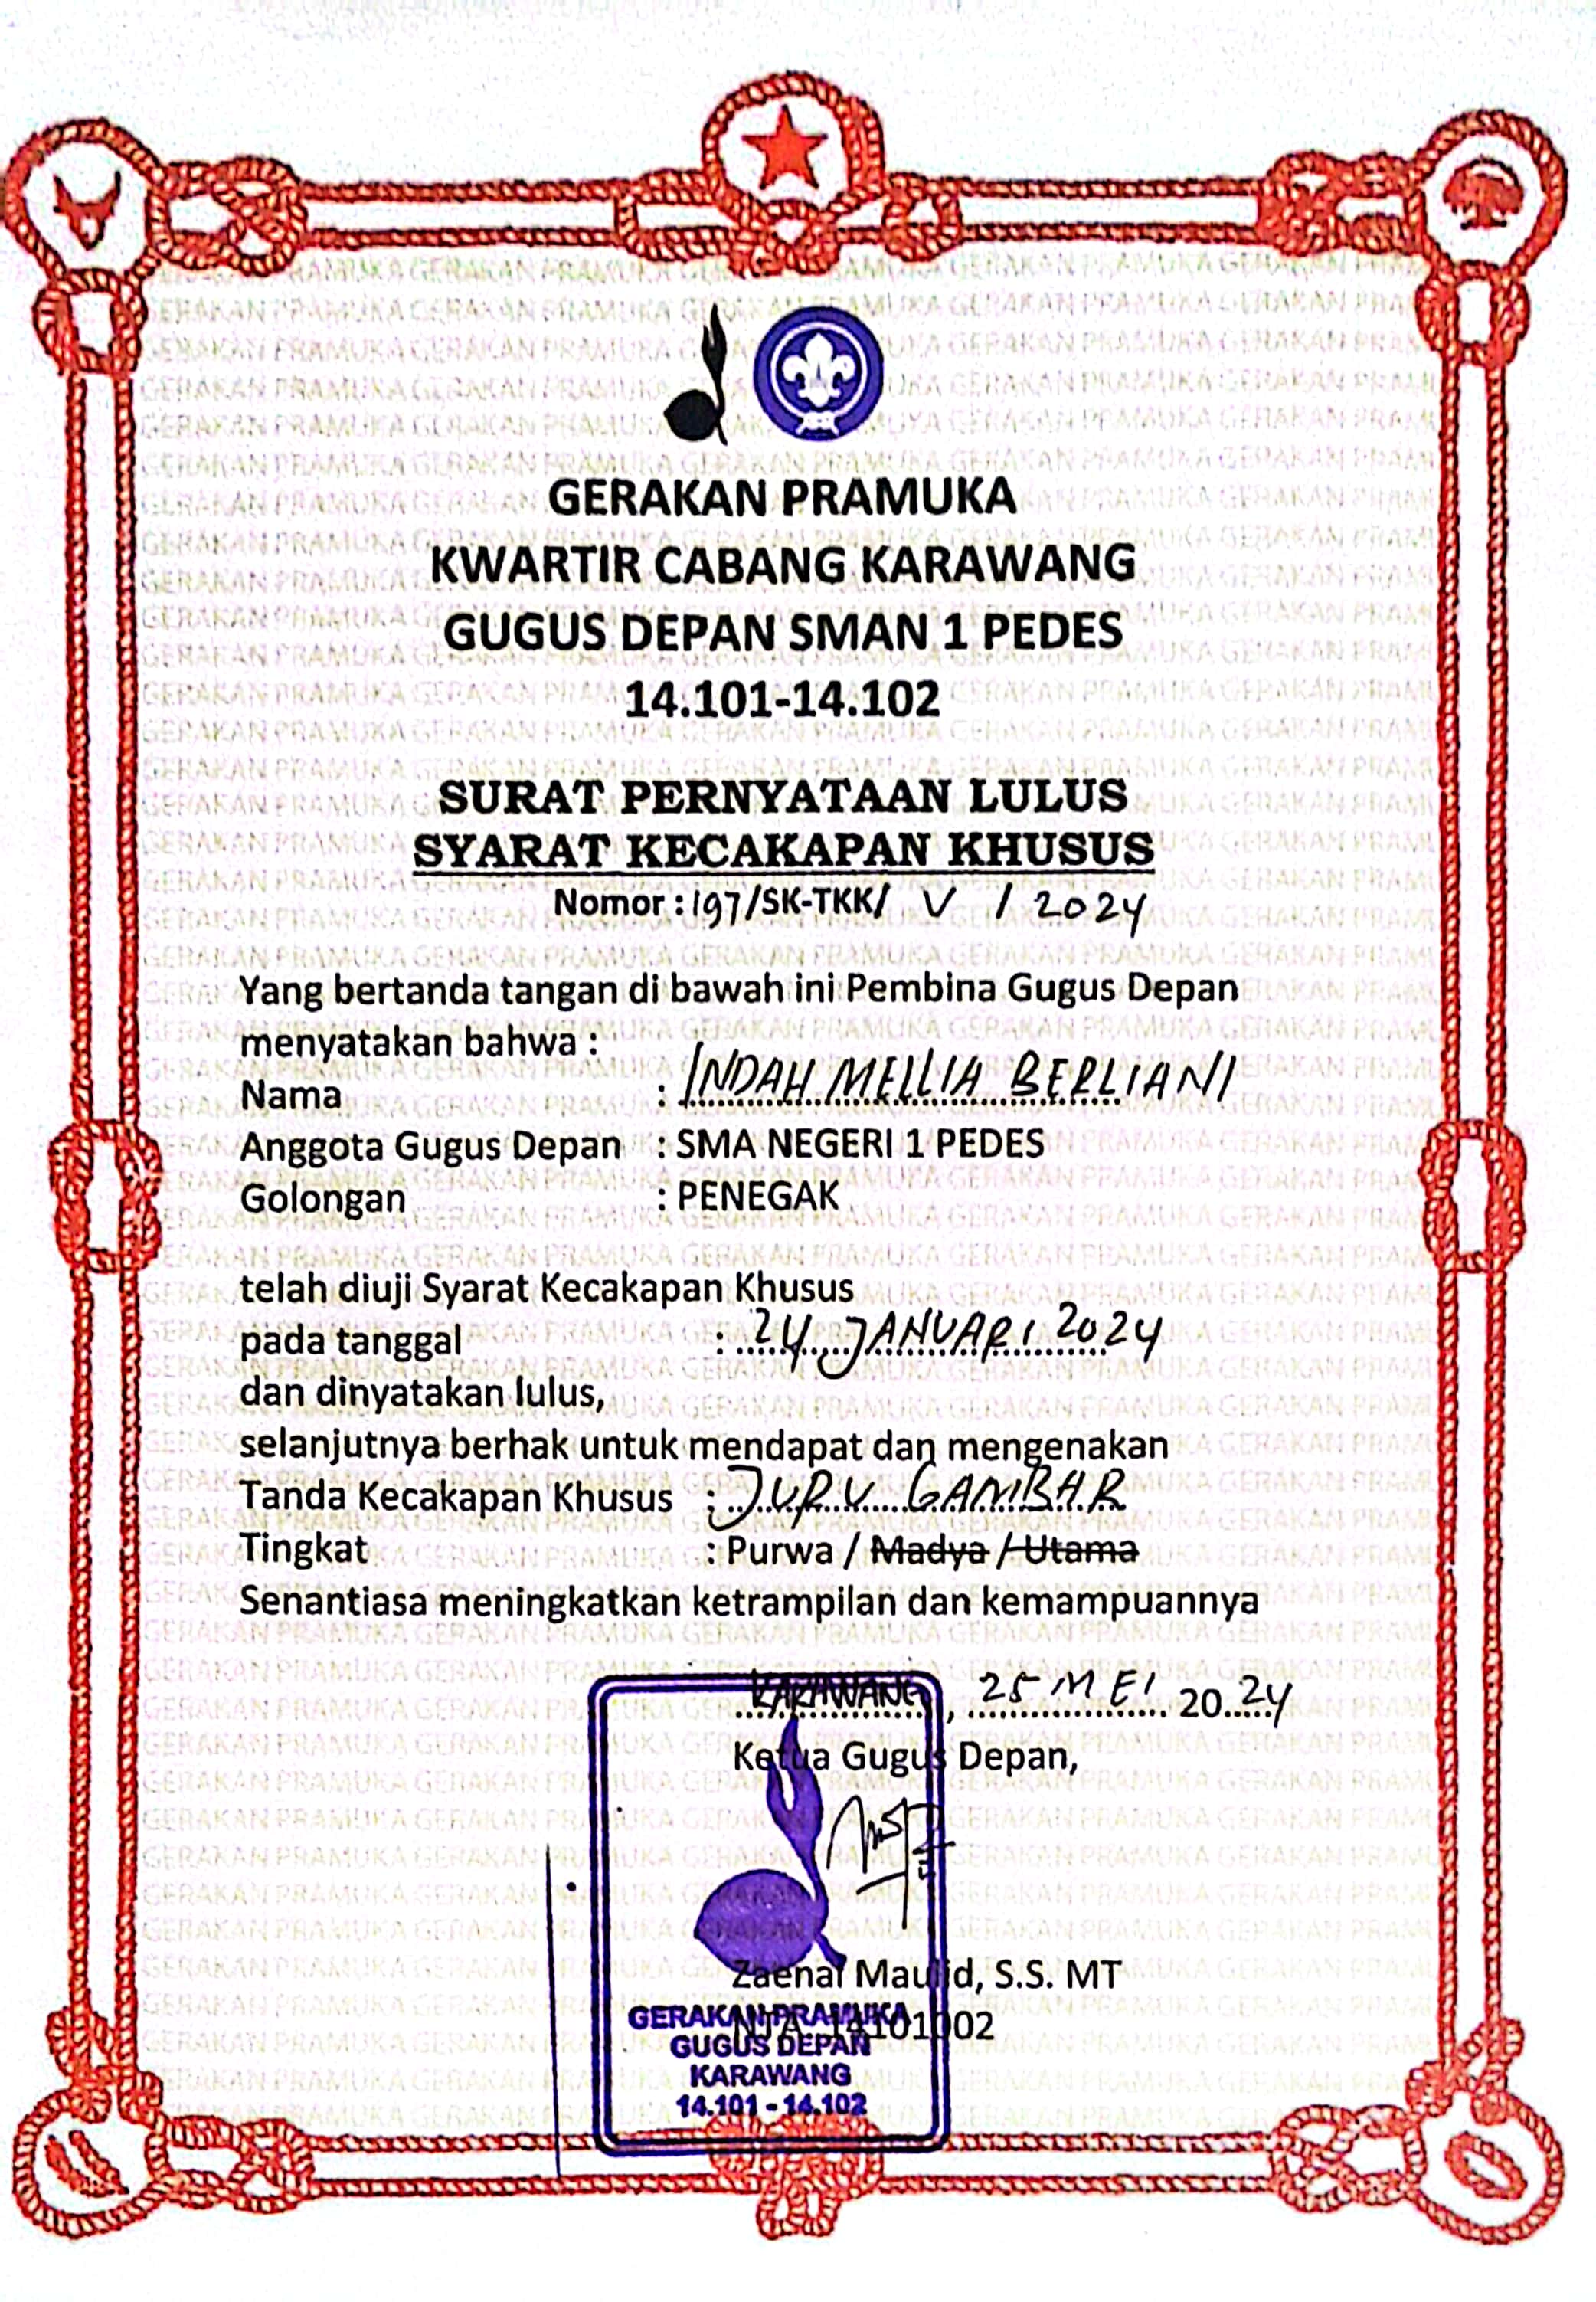 GERAKAN PRAMUKA
KWARTIR CABANG KARAWANG
GUGUS DEPAN SMAN 1 PEDES
14.101-14.102
SURAT PERNYATAAN LULUS
SYARAT KECAKAPAN KHUSUS
Nomor : 197/SK-TKK/ V / 2024
Yang bertanda tangan di bawah ini Pembina Gugus Depan
menyatakan bahwa :
Nama : INDAH MELLIA BERLIANI
Anggota Gugus Depan : SMA NEGERI 1 PEDES
Golongan : PENEGAK
telah diuji Syarat Kecakapan Khusus
pada tanggal : 24 JANUARI 2024
dan dinyatakan lulus,
selanjutnya berhak untuk mendapat dan mengenakan
Tanda Kecakapan Khusus : JURU GAMBAR
Tingkat : Purwa / Madya / Utama
Senantiasa meningkatkan ketrampilan dan kemampuannya
KARAWANG, 25 MEI 2024
Ketua Gugus Depan,
Zaenal Maulid, S.S. MT
NTA. 14101002
GERAKAN PRAMUKA
GUGUS DEPAN
KARAWANG
14.101 - 14.102